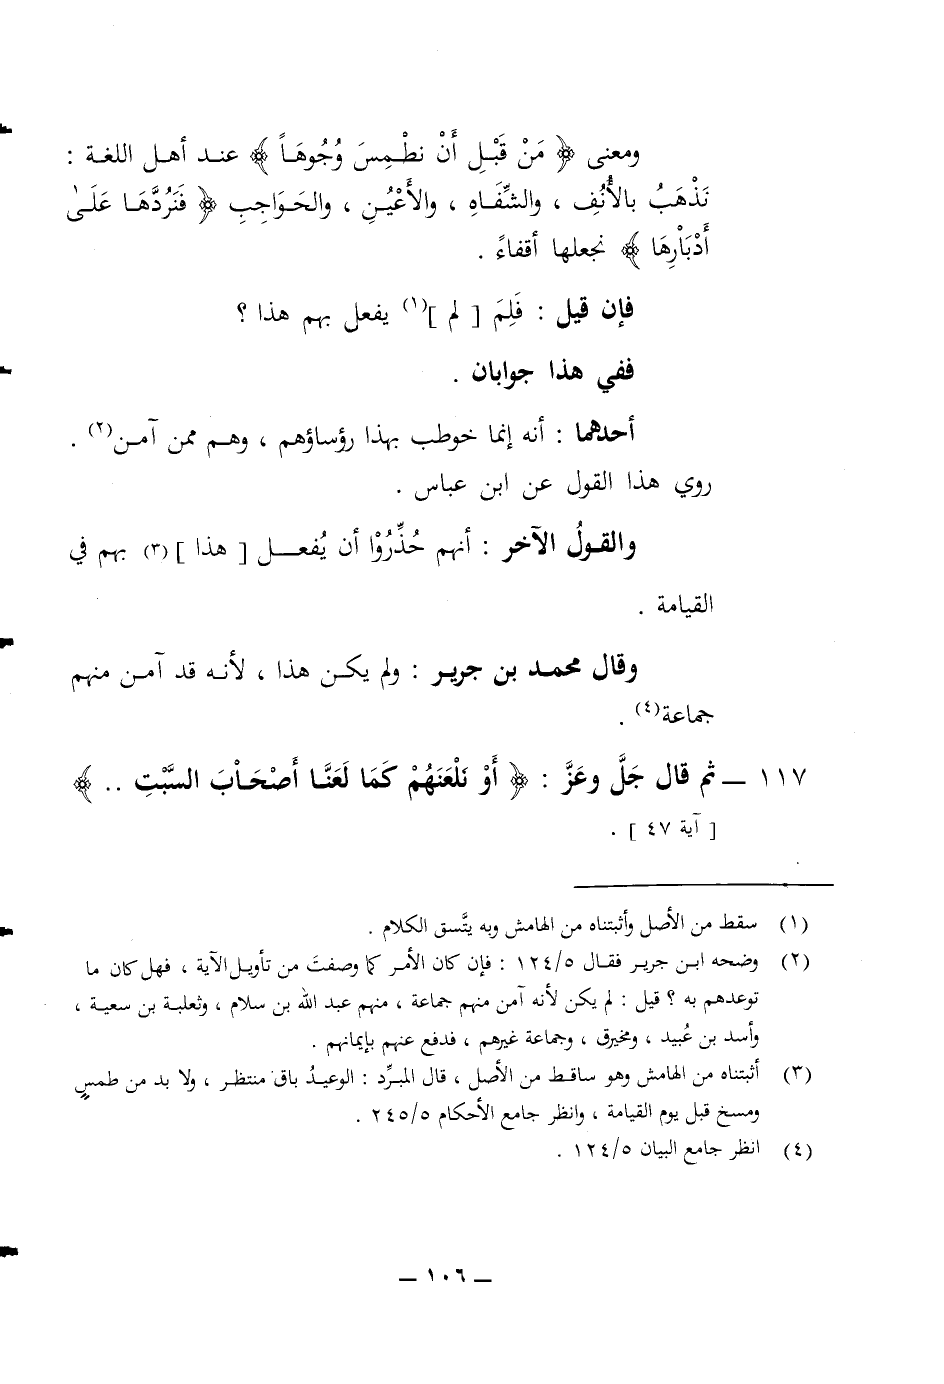 ومعنى ﴿ مَنْ قَبْلِ أَنْ نطْمِسَ وُجُوهَاً ﴾ عند أهل اللغة :
نَذْهَبُ بالأُنُفِ ، والشِّفَاهِ ، والأَعْيُنِ ، والحَوَاجِبِ ﴿ فَنَرُدَّهَا عَلَىٰ
أَدْبَاْرِهَا ﴾ نجعلها أقفاءً .
فإن قيل : فَلِمَ [ لم ](١) يفعل بهم هذا ؟
ففي هذا جوابان .
أحدهما : أنه إنما خوطب بهذا رؤساؤهم ، وهم ممن آمن(٢) .
روي هذا القول عن ابن عباس .
والقولُ الآخر : أنهم حُذِّرُوْا أن يُفعل [ هذا ](٣) بهم في
القيامة .
وقال محمد بن جرير : ولم يكن هذا ، لأنه قد آمن منهم
جماعة(٤) .
١١٧ ــ ثم قال جَلَّ وعَزَّ : ﴿ أَوْ نَلْعَنَهُمْ كَمَا لَعَنَّا أَصْحَاْبَ السَّبْتِ .. ﴾
[ آية ٤٧ ] .
(١) سقط من الأصل وأثبتناه من الهامش وبه يتَّسق الكلام .
(٢) وضحه ابن جرير فقال ١٢٤/٥ : فإن كان الأمر كما وصفتَ من تأويل الآية ، فهل كان ما
توعدهم به ؟ قيل : لم يكن لأنه آمن منهم جماعة ، منهم عبد الله بن سلام ، وثعلبة بن سعية ،
وأسد بن عُبيد ، ومخيرق ، وجماعة غيرهم ، فدفع عنهم بإيمانهم .
(٣) أثبتناه من الهامش وهو ساقط من الأصل ، قال المبرِّد : الوعيدُ باق منتظر ، ولا بد من طمسٍ
ومسخ قبل يوم القيامة ، وانظر جامع الأحكام ٢٤٥/٥ .
(٤) انظر جامع البيان ١٢٤/٥ .
ــ ١٠٦ ــ